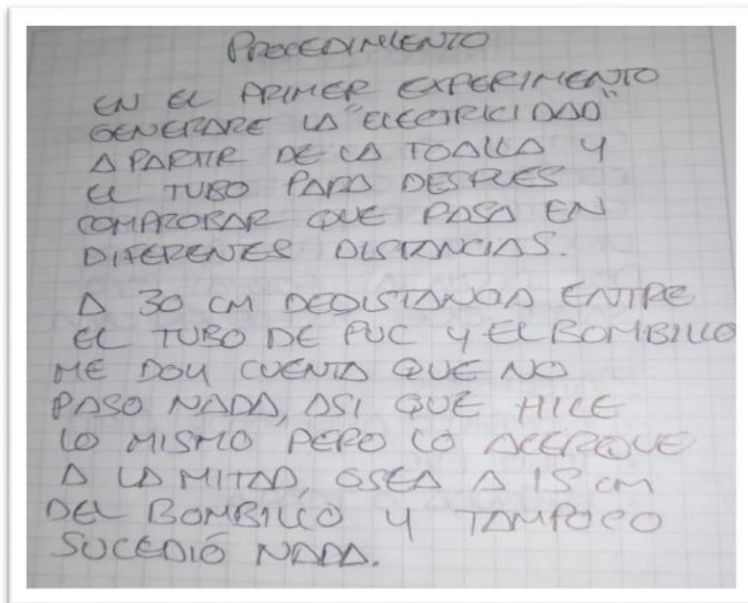 PROCEDIMIENTO
EN EL PRIMER EXPERIMENTO
GENERARE LA "ELECTRICIDAD"
A PARTIR DE LA TOALLA Y
EL TUBO PARA DESPUES
COMPROBAR QUE PASA EN
DIFERENTES DISTANCIAS.
A 30 CM DEDISTANCIA ENTRE
EL TUBO DE PVC Y EL BOMBILLO
ME DOY CUENTA QUE NO
PASO NADA, ASI QUE HICE
LO MISMO PERO LO ACERQUE
A LA MITAD, OSEA A 15 CM
DEL BOMBILLO Y TAMPOCO
SUCEDIÓ NADA.